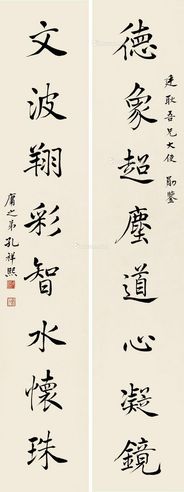 廷耿吾兄大使 勛鑒
德象超塵道心凝鏡
文波翔彩智水懷珠
庸之弟孔祥熙